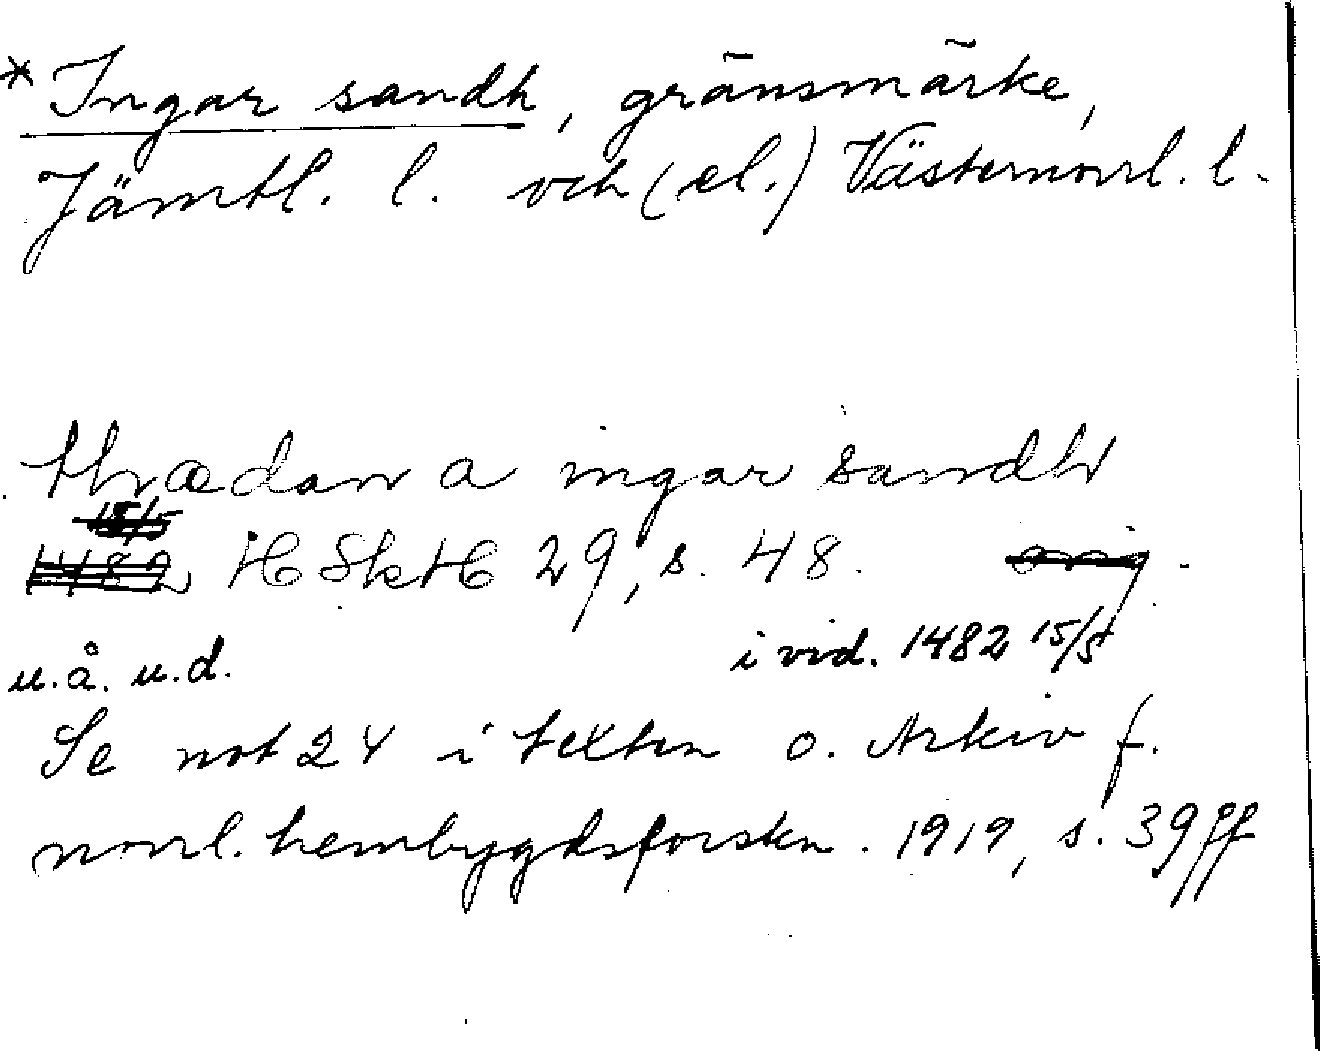 * Ingar sandh, gränsmärke,
Jämtl. l. och (el.) Västernorrl. l.
thrædan a ingar sandh
15/5
1482 HSkH 29, s. 48. orig.
u.å. u.d. i vid. 1482 15/5
Se not 24 i texten o. Arkiv f.
norrl. hembygdsforskn. 1919, s. 39 ff